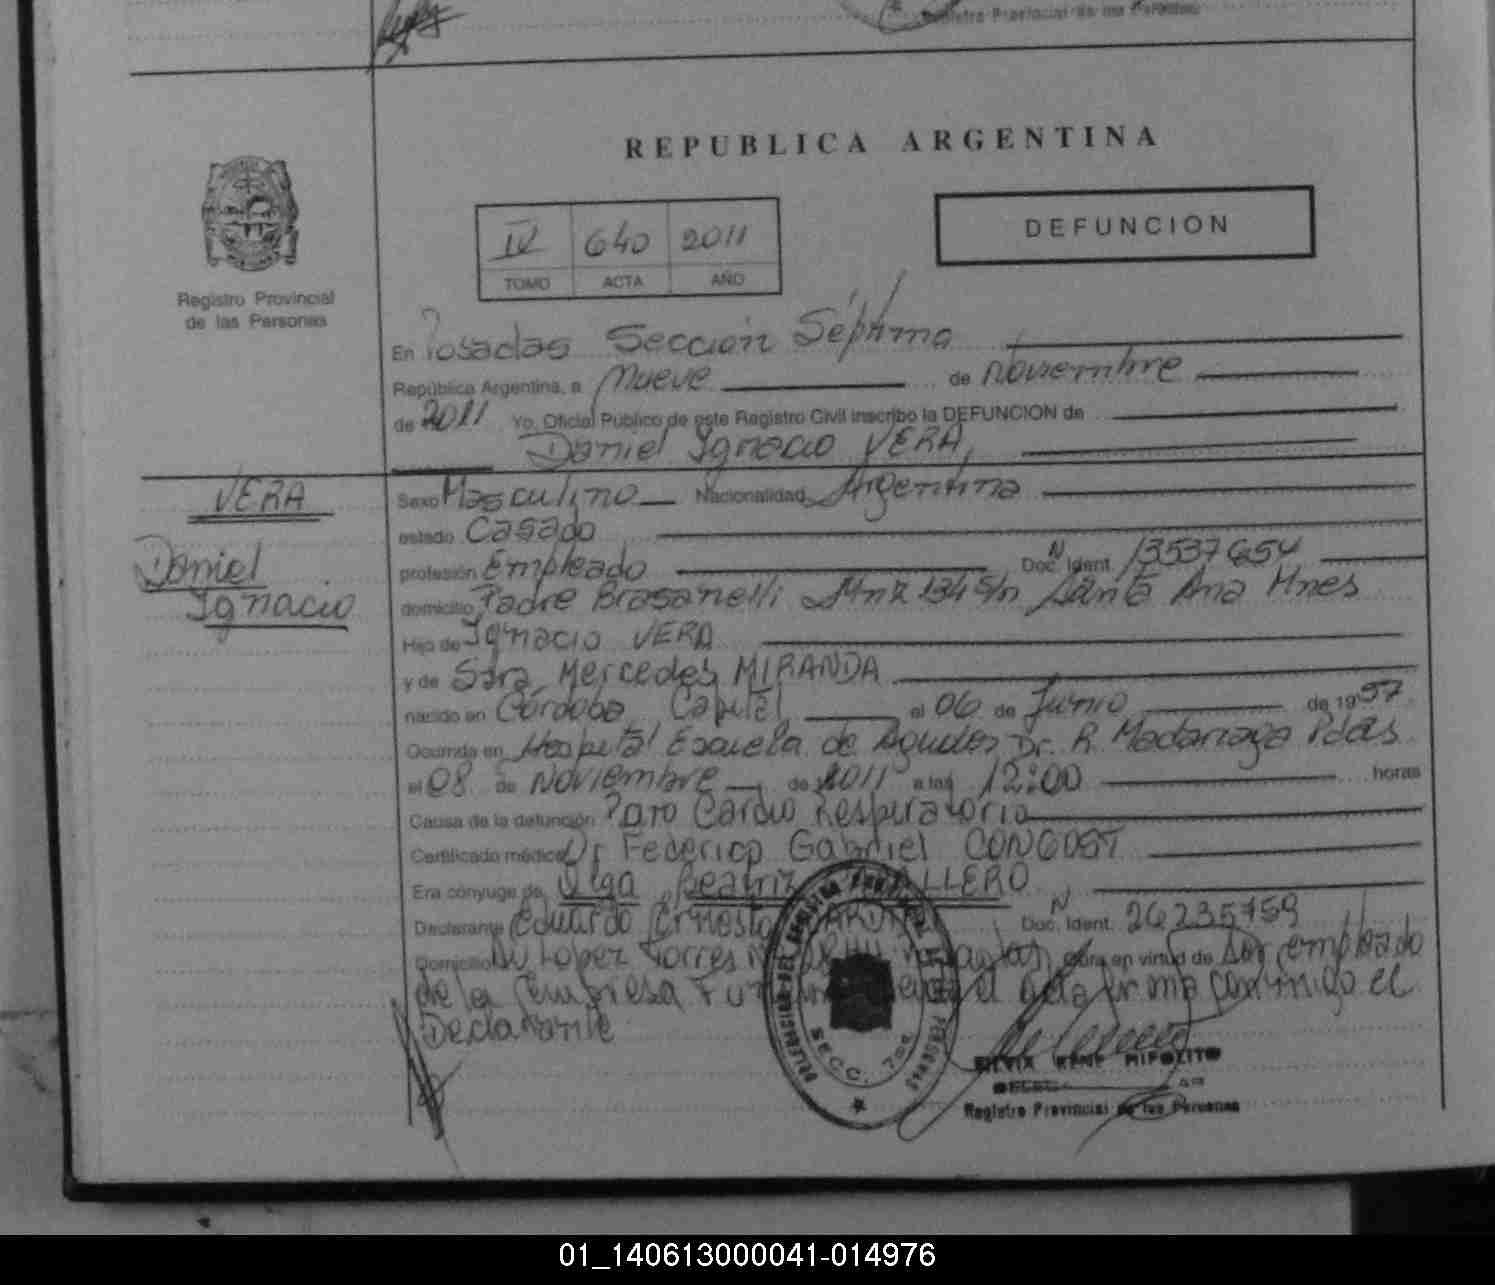 Registro Provincial de las Personas
REPUBLICA ARGENTINA
IV 640 2011
TOMO ACTA AÑO
DEFUNCION
Registro Provincial
de las Personas
En Posadas Sección Séptima
República Argentina, a Nueve de Noviembre
de 2011 Yo, Oficial Público de este Registro Civil inscribo la DEFUNCION de
Daniel Ignacio VERA,
VERA
Daniel
Ignacio
Sexo Masculino Nacionalidad Argentina
estado Casado
profesión Empleado Doc. N Ident. 13537654
domicilio Padre Brasanelli Mnz 134 S/n Santa Ana Mnes
Hijo de Ignacio VERA
y de Sara Mercedes MIRANDA
nacido en Córdoba Capital el 06 de Junio de 1957
Ocurrida en Hospital Escuela de Agudos Dr. R. Madariaga Pdas
el 08 de Noviembre de 2011 a las 12:00 horas
Causa de la defunción Paro Cardio Respiratorio
Certificado médico Dr Federico Gabriel CONGOST
Era cónyuge de Olga Beatriz
Declarante Eduardo Ernesto Doc. N Ident. 26235759
Domicilio Av Lopez Torres Obra en virtud de Ser empleado
de la Empresa el acta firma conmigo el
Declarante
SECC. 7ma
SILVIA RENE HIPOLITO
Registro Provincial de las Personas
01_140613000041-014976